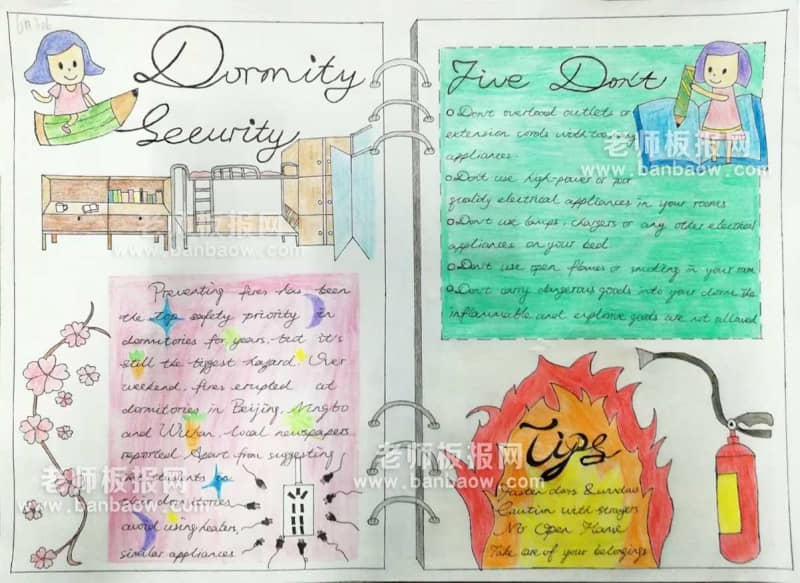 Dormity
Security
Preventing fires has been
the top safety priority in
dormitories for years, but it's
still the biggest hazard. Over
weekend, fires erupted at
dormitories in Beijing, Ningbo
and Wuhan, local newspapers
reported. Apart from suggesting
students to
their dormitories
avoid using heaters,
similar appliances
Five Don't
Don't overload outlets or
extension cords with too many
appliances.
Don't use high-power or poor
quality electrical appliances in your rooms
Don't use lamps, chargers or any other electrical
appliances on your bed
Don't use open flames or smoking in your room
Don't carry dangerous goods into your dorm. the
inflammable and explosive goods are not allowed
Tips
Fasten doors & window
Caution with strangers
No Open Flame
Take care of your belongings
老师板报网
www.banbaow.com
老师板报网
www.banbaow.com
老师板报网
www.banbaow.com
老师板报网
www.banbaow.com